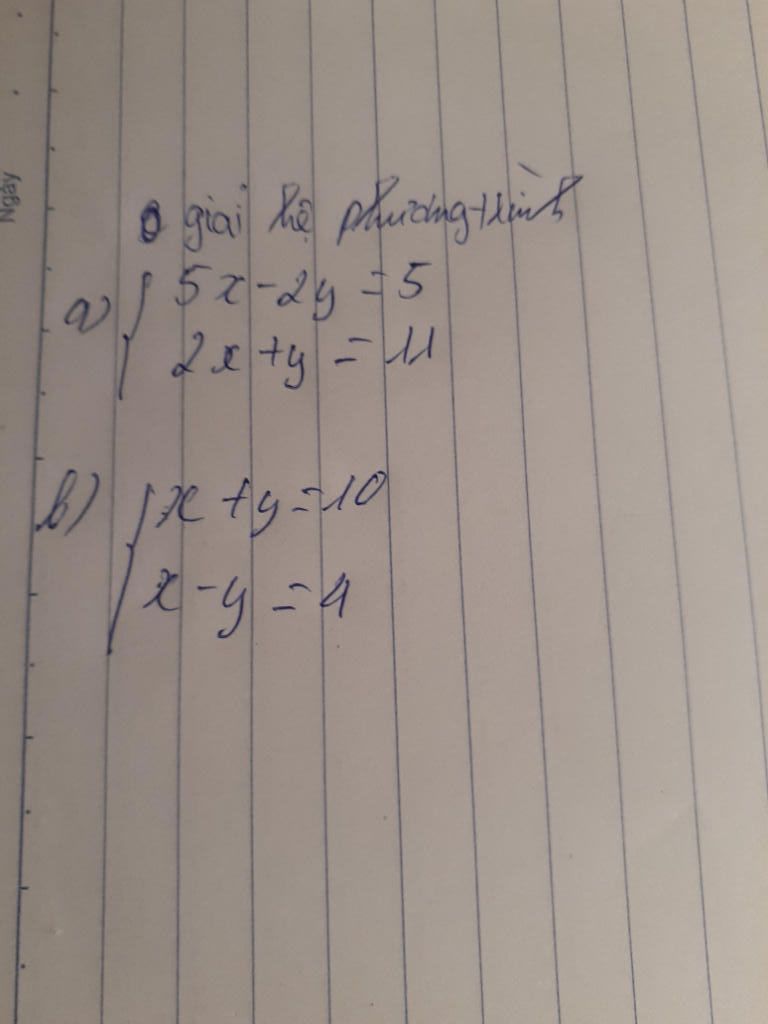 Ngày
giải hệ phương trình
a) { 5x - 2y = 5
2x + y = 11
b) { x + y = 10
x - y = 4